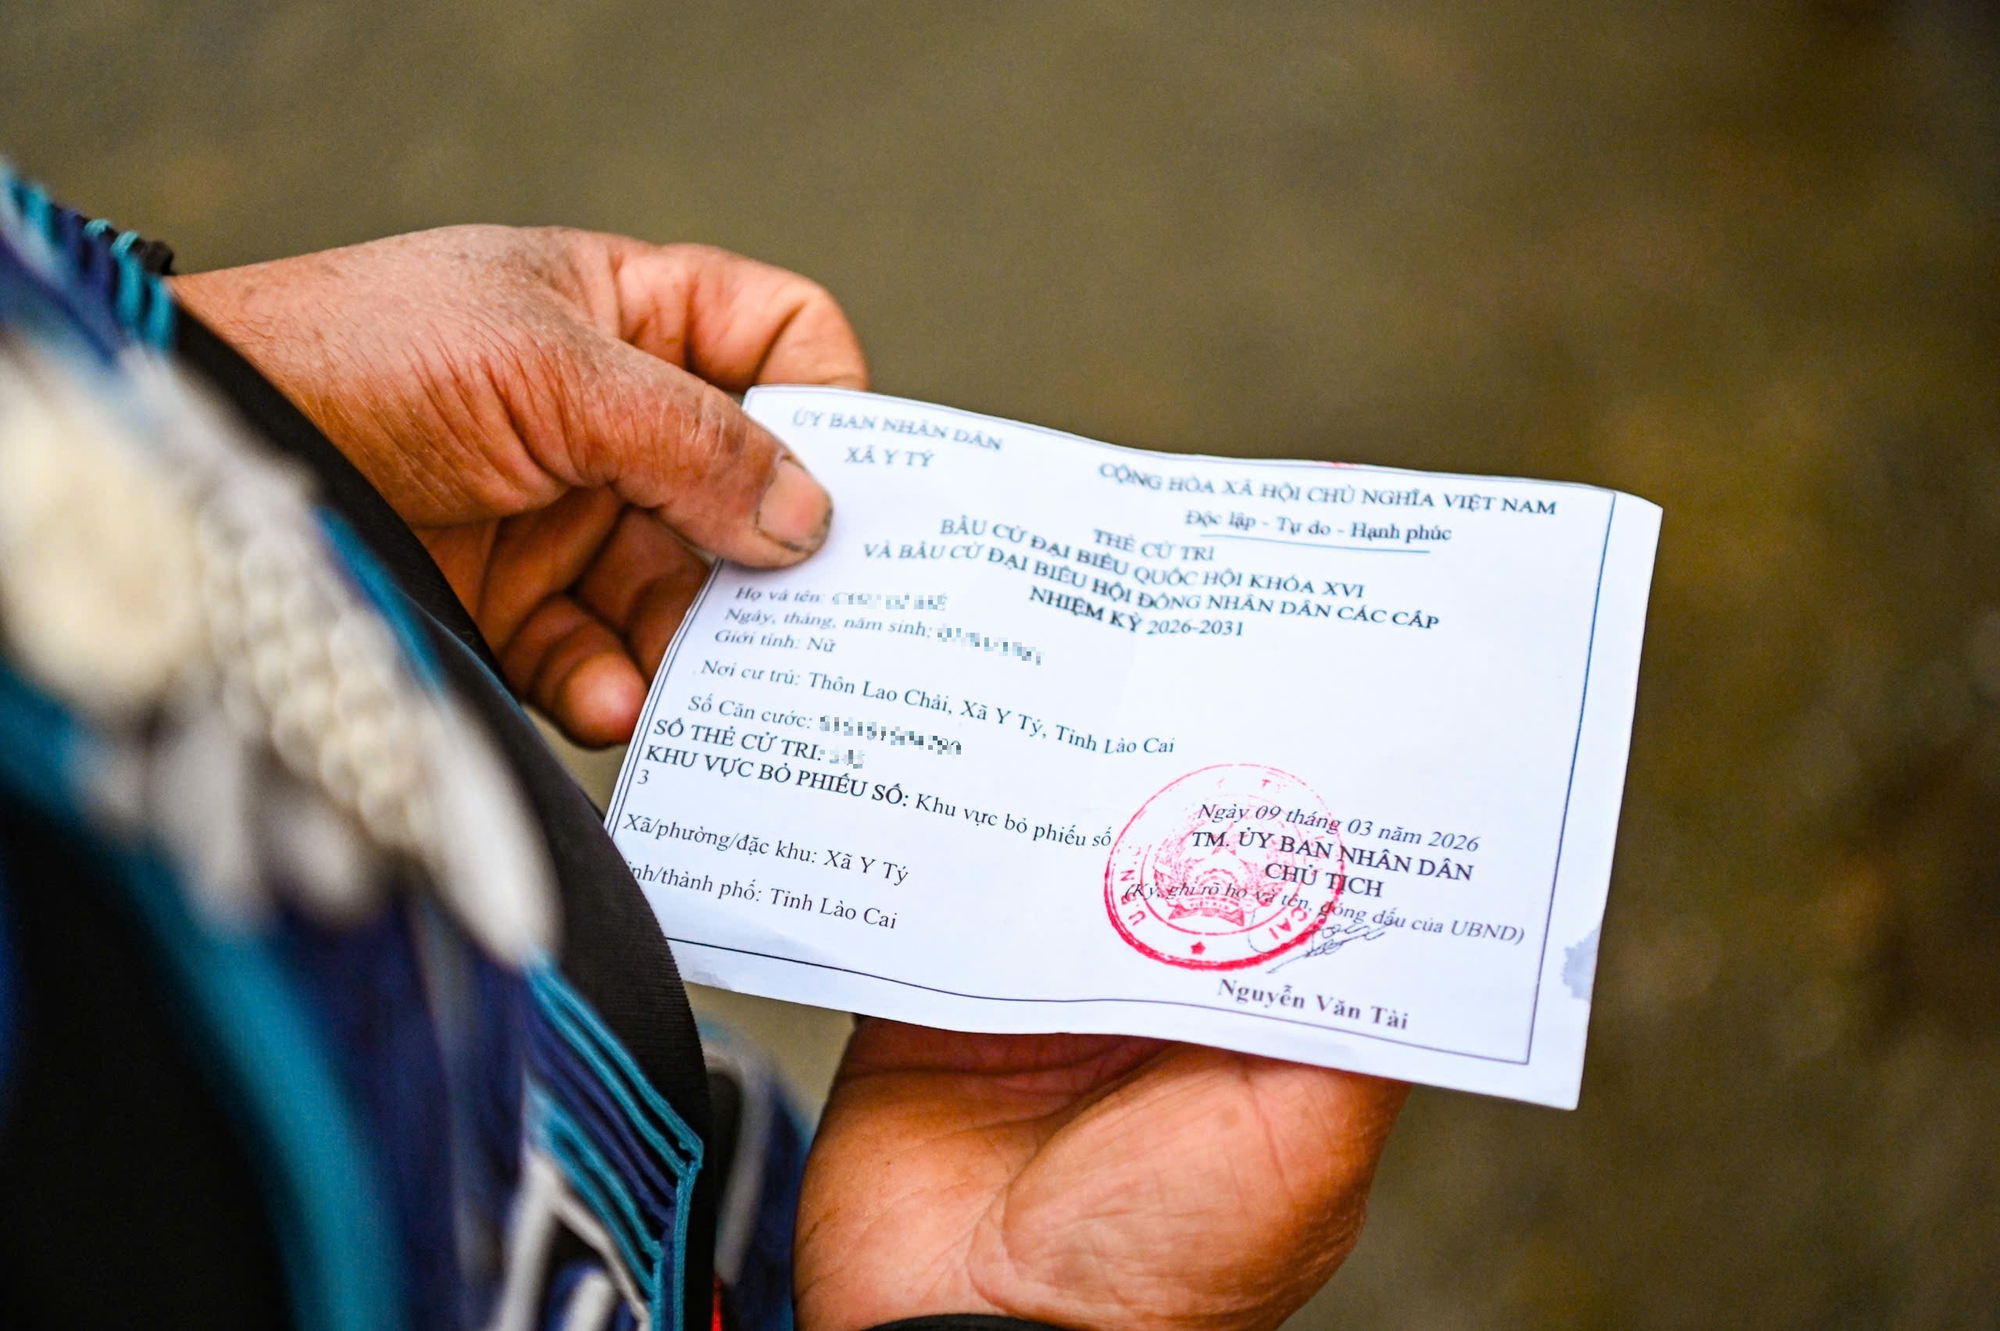 ỦY BAN NHÂN DÂN
XÃ Y TÝ
CỘNG HÒA XÃ HỘI CHỦ NGHĨA VIỆT NAM
Độc lập - Tự do - Hạnh phúc
THẺ CỬ TRI
BẦU CỬ ĐẠI BIỂU QUỐC HỘI KHÓA XVI
VÀ BẦU CỬ ĐẠI BIỂU HỘI ĐỒNG NHÂN DÂN CÁC CẤP
NHIỆM KỲ 2026-2031
Họ và tên:
Ngày, tháng, năm sinh:
Giới tính: Nữ
Nơi cư trú: Thôn Lao Chải, Xã Y Tý, Tỉnh Lào Cai
Số Căn cước:
SỐ THẺ CỬ TRI:
KHU VỰC BỎ PHIẾU SỐ: Khu vực bỏ phiếu số
3
Xã/phường/đặc khu: Xã Y Tý
ỉnh/thành phố: Tỉnh Lào Cai
Ngày 09 tháng 03 năm 2026
TM. ỦY BAN NHÂN DÂN
CHỦ TỊCH
(Ký, ghi rõ họ và tên, đóng dấu của UBND)
Nguyễn Văn Tài